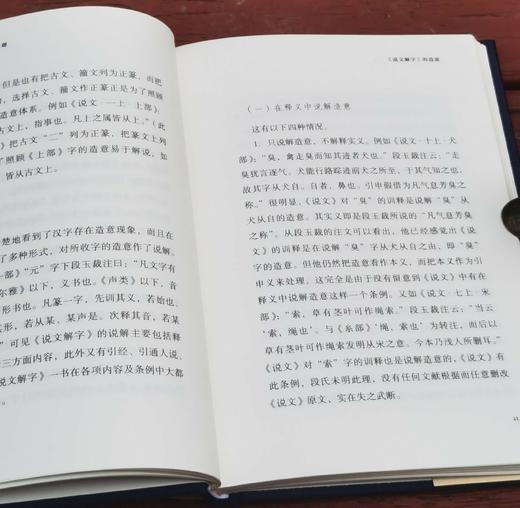 但是也有把古文、籀文列为正篆，而把
，选择古文、籀文作正篆正是为了照顾
造意体系。例如《说文·一上·上部》
古文上，指事也。凡上之属皆从上。”（此
把古文“二”列为正篆，把篆文上列
了照顾《上部》字的造意易于解说，如
皆从古文上。
楚地看到了汉字存在造意现象，而且在
了多种形式，对所收字的造意作了说解。
一部》“元”字下段玉裁注曰：“凡文字有
尔雅》以下，义书也。《声类》以下，音
形书也。凡篆一字，先训其义，若始也、
形，若从某、某声是。次释其音，若某
”可见《说文解字》的说解主要包括释
三方面内容，此外又有引经、引通人说、
说文解字》一书在各项内容及条例中大都
《说文解字》的造意
（一）在释义中说解造意
这有以下四种情况。
1. 只说解造意，不解释实义。例如《说文·十上·犬
部》：“臭，禽走臭而知其迹者犬也。”段玉裁注云：“走
臭犹言逐气。犬能行路踪迹前犬之所至，于其气知之也，
故其字从犬自。自者，鼻也。引申假借为凡气息芳臭之
称。”很明显，《说文》对“臭”的训释是说解“臭”从
犬从自的造意。其实义即是段玉裁所说的“凡气息芳臭
之称”。从段玉裁的注文可以看出，他已经感觉出《说
文》的训释是在说解“臭”字从犬从自之由，即“臭”
字的造意。但他仍然把造意看作本义，而把本义作为引
申义来处理，这完全是由于没有留意到《说文》中有在
释义中说解造意这样一个条例。又如《说文·七上·米
部》：“索，草有茎叶可作绳索。”段玉裁注云：“当云
‘索，绳也’。与《糸部》‘绳，索也’为转注，而后以
草有茎叶可作绳索发明从米之意。今本乃浅人所删耳。”
《说文》对“索”字的训释也是说解造意的，《说文》有
此条例，段氏未明此理，没有任何文献根据而任意删改
《说文》原文，实在失之武断。